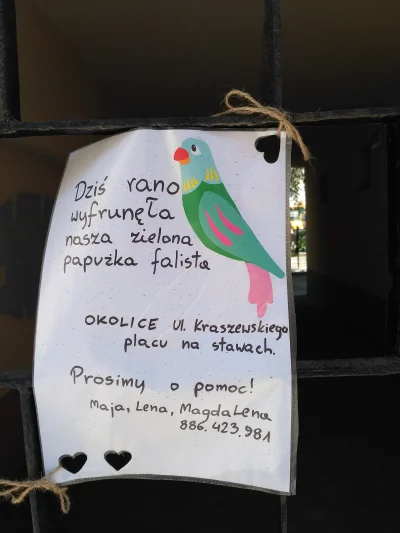 Dziś rano
wyfrunęła
nasza zielona
papużka falista
OKOLICE ul. Kraszewskiego
placu na stawach.
Prosimy o pomoc!
Maja, Lena, Magdalena
886.423.981